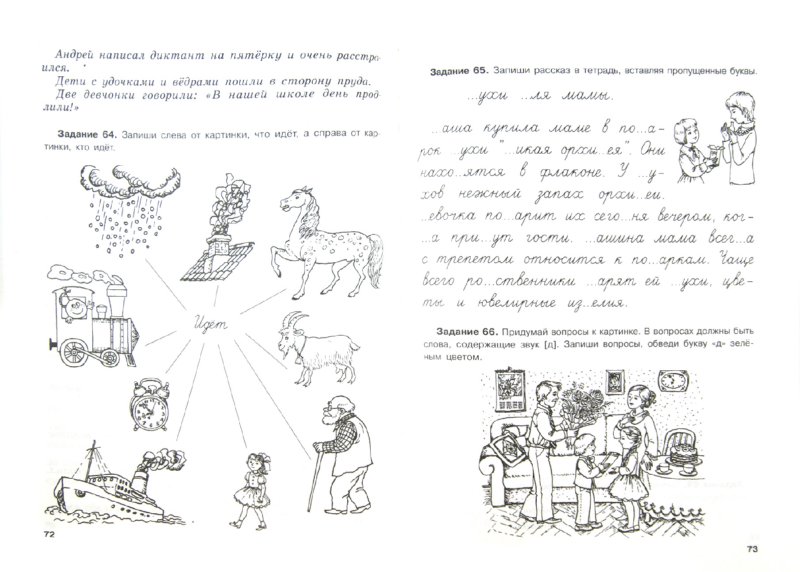 Андрей написал диктант на пятёрку и очень расстро-
ился.
Дети с удочками и вёдрами пошли в сторону пруда.
Две девчонки говорили: «В нашей школе день прод-
лили!»
Задание 64. Запиши слева от картинки, что идёт, а справа от кар-
тинки, кто идёт.
Идет
72
Задание 65. Запиши рассказ в тетрадь, вставляя пропущенные буквы.
...ухи ...ля мамы.
...аша купила маме в по...а-
рок ...ухи "...икая орхи...ея". Они
нахо...ятся в флаконе. У ...у-
хов нежный запах орхи...еи.
...евочка по...арит их сего...ня вечером, ког-
...а при...ут гости. ...ашина мама всег...а
с трепетом относится к по...аркам. Чаще
всего ро...ственники ...арят ей ...ухи, цве-
ты и ювелирные из...елия.
Задание 66. Придумай вопросы к картинке. В вопросах должны быть
слова, содержащие звук [д]. Запиши вопросы, обведи букву «д» зелё-
ным цветом.
73